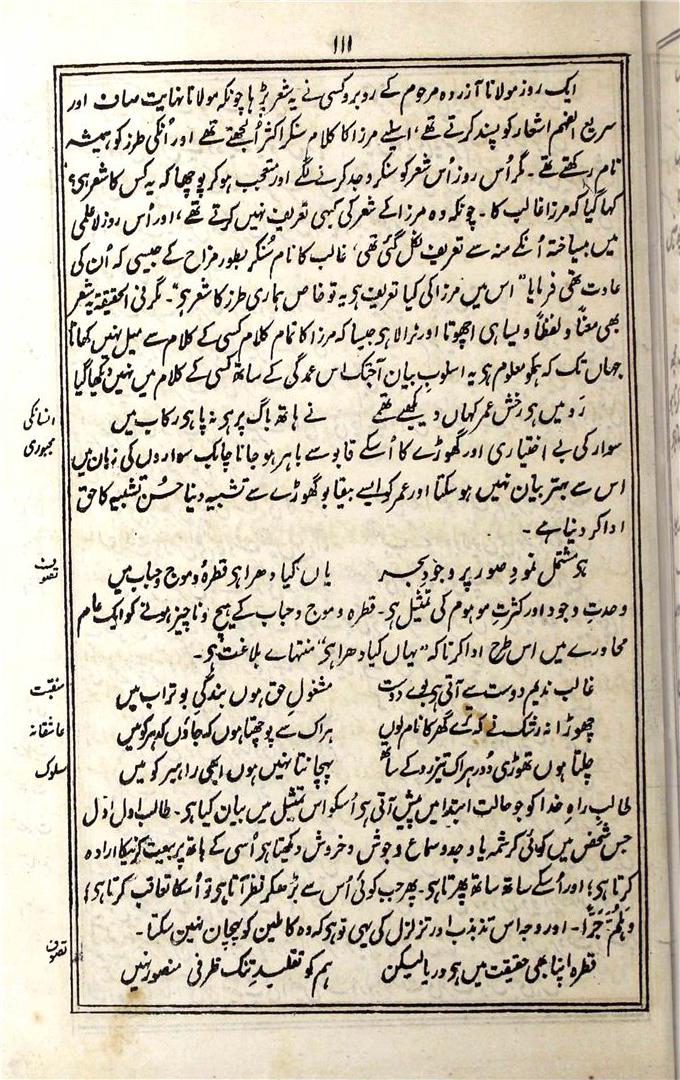 ۱۱۱
ایک روز مولانا آزردہ مرحوم کے روبرو کسی نے یہ شعر پڑہا چونکہ مولانا نہایت صاف اور
سریع الفہم اشعار کو پسند کرتے تھے، اسلیے مرزا کا کلام سنکر اکثر اُلجھتے تھے اور اُنکی طرز کو ہمیشہ
نام رکھتے تھے۔ مگر اُس روز اُس شعر کو سنکر وجد کرنے لگے اور متعجب ہو کر پوچھا کہ یہ کس کا شعر ہی؟
کہا گیا کہ مرزا غالب کا۔ چونکہ وہ مرزا کے شعر کی کبھی تعریف نہیں کرتے تھے، اور اُس روز لاعلمی
میں بیساختہ اُنکے منہ سے تعریف نکل گئی تھی، غالب کا نام سُنکر بطور مزاح کے جیسی کہ اُن کی
عادت تھی فرمایا "اس میں مرزا کی کیا تعریف ہی یہ تو خاص ہماری طرز کا شعر ہی"۔ مگر فی الحقیقۃ یہ شعر
بھی معناً و لفظاً ویسا ہی اچھوتا اور نرالا ہی جیسا کہ مرزا کا تمام کلام کسی کے کلام سے میل نہیں کھاتا
جہاں تک کہ ہمکو معلوم ہی یہ اسلوبِ بیان آجتک اس عمدگی کے ساتھ کسی کے کلام میں نہیں دیکھا گیا
انسانکی مجبوری
رَو میں ہی رخش عمر کہاں دیکھیے تھمے نے ہاتھ باگ پر ہی نہ پا ہی رکاب میں
سوار کی بے اختیاری اور گھوڑے کا اُسکے قابو سے باہر ہو جانا چابک سواروں کی زبان میں
اس سے بہتر بیان نہیں ہو سکتا اور عمر کو ایسے بیقابو گھوڑے سے تشبیہ دینا حسُن تشبیہ کا حق
ادا کر دینا ہے۔
تصوف
ہی مشتمل نمودِ صور پر وجودِ بحر یاں کیا دھرا ہی قطرہ و موج و حباب میں
وحدتِ وجود اور کثرتِ موہوم کی تمثیل ہی۔ قطرہ و موج و حباب کے ہیچ و ناچیز ہونے کو ایک عام
محاورے میں اس طرح ادا کرنا کہ "یہاں کیا دھرا ہی" منتہاے بلاغت ہی۔
منقبت
غالب ندیم دوست سے آتی ہی بوے دوست مشغولِ حق ہوں بندگی بو تراب میں
عاشقانہ
چھوڑا نہ رشک نے کہ ترے گھر کا نام لوں ہر اک سے پوچھتا ہوں کہ جاؤں کدہر کو میں
سلوک
چلتا ہوں تھوڑی دُور ہر اک تیز رو کے ساتھ پہچانتا نہیں ہوں ابھی راہبر کو میں
طالبِ راہِ خدا کو جو حالت ابتدا میں پیش آتی ہی اُسکو اس تمثیل میں بیان کیا ہی۔ طالب اول اول
جس شخص میں کوئی کرشمہ یا وجد و سماع و جوش و خروش دیکھتا ہی اُسی کے ہاتھ پر بیعت کرنیکا ارادہ
کرتا ہی؛ اور اُسکے ساتھ ساتھ پھرتا ہی۔ پھر جب کوئی اُس سے بڑھکر نظر آتا ہی تو اُسکا تعاقب کرتا ہی؛
وَہَلُمَّ جَرًّا۔ اور وجہ اس تذبذب اور تزلزل کی یہی تو ہی کہ وہ کاملین کو پہچان نہیں سکتا۔
تصوف
قطرہ اپنا بھی حقیقت میں ہی دریا لیکن ہم کو تقلیدِ تنک ظرفی منصور نہیں